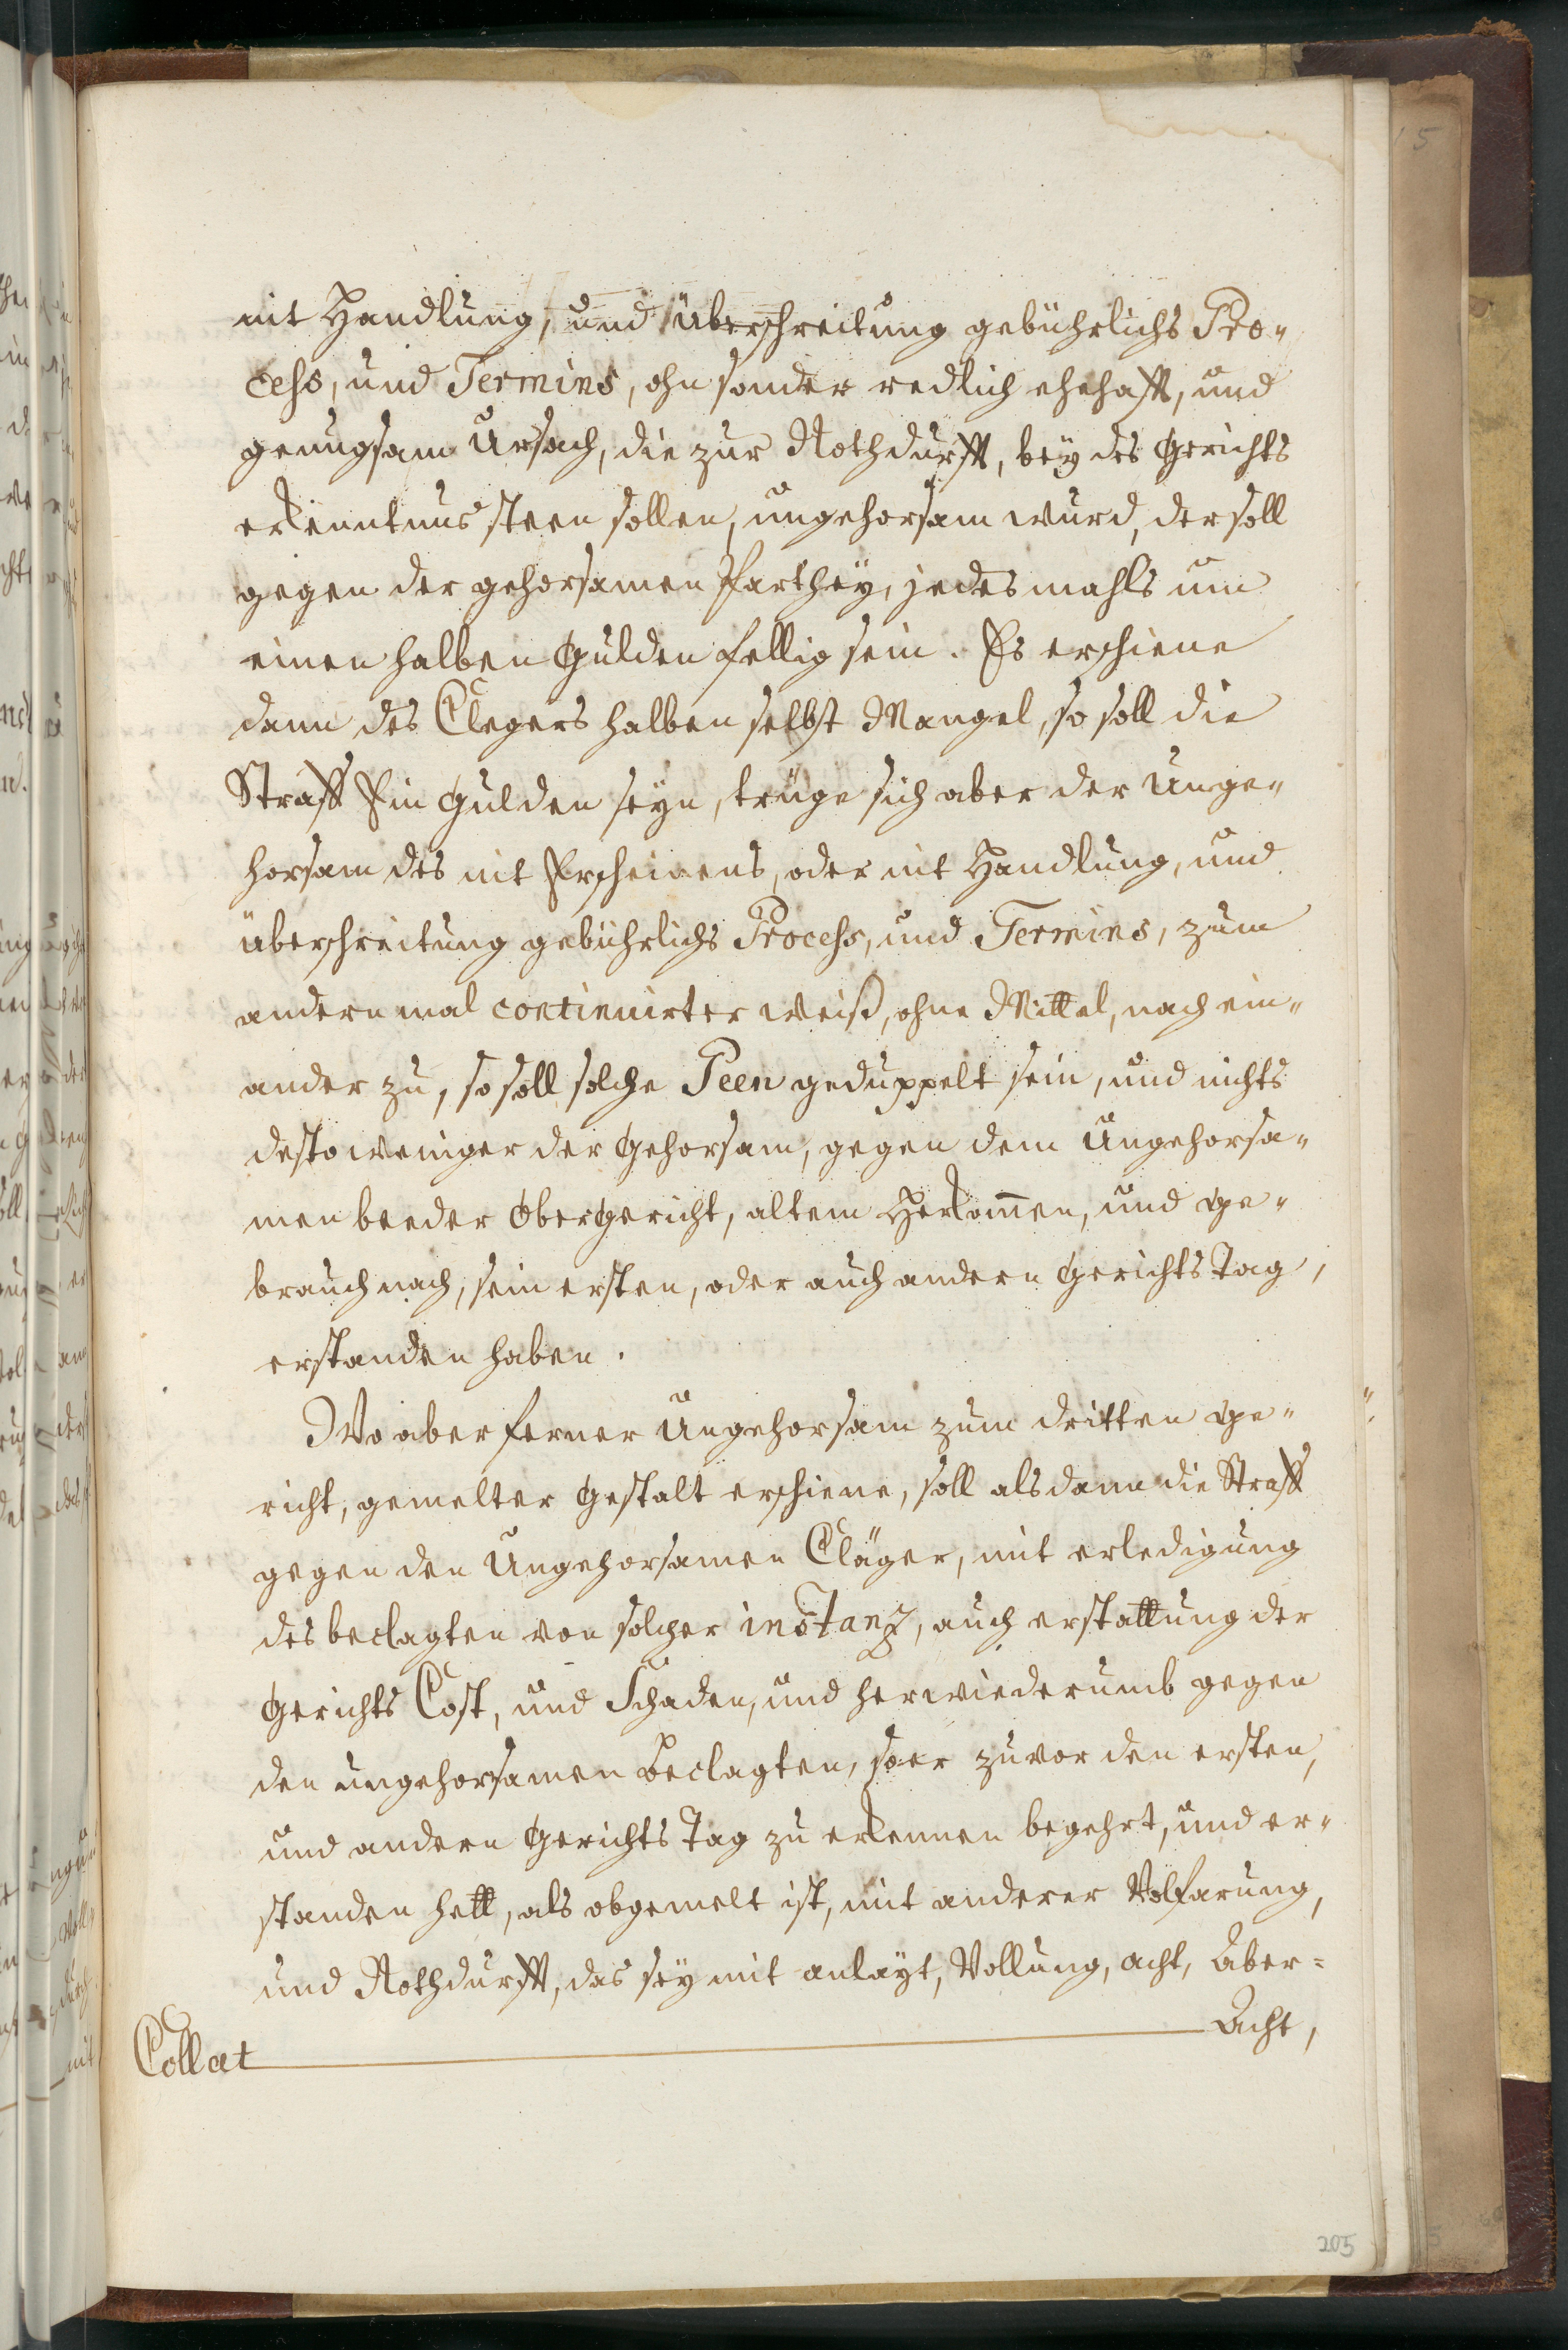 nit Handlung, und überschreitung gebührlichs Pro„
cess, und Termins, ohn sonder redlich ehehafft, und
genugsam Ursach, die zur Nothdurfft, bey des Gerichts
erkenntnus steen sollen, ungehorsam wurd, der soll
gegen der gehorsamen Parthey, jedesmahls um
einen halben Gulden fellig sein. Es erschiene
dann des Clegers halben selbst Mangel, so soll die
Straff Ein Gulden seyn, trüge sich aber der Unge„
horsam des nit Erscheinens, oder nit Handlung, und
überschreitung gebührlichs Process, und Termins, zum
andern mal continuirter weiß, ohne Mittel, nach ein„
ander zu, so soll solche Peen geduppelt sein, und nichts
destoweniger der Gehorsam, gegen dem Ungehorsa„
men beeder Obergericht, altem Herkom̄en, und ge„
brauch nach, sein ersten, oder auch andern Gerichts Tag,
erstanden haben.
Wo aber ferner Ungehorsam zum dritten ge„
richt, gemelter Gestalt erschiene, soll als dann die Straff
gegen den Ungehorsamen Cläger, mit erledigung
des beclagten von solcher instanz, auch erstattung der
Gerichts Cost, und Schaden, und herwiederumb gegen
den ungehorsamen Beclagten, so er zuvor den ersten,
und andern Gerichts Tag zu erkennen begehrt, und er„
standen hett, als obgemelt ist, mit anderer Volfarung,
und Nothdurfft, das sey mit anlayt, Vollung, acht, Aber=
Acht,
Collat
205